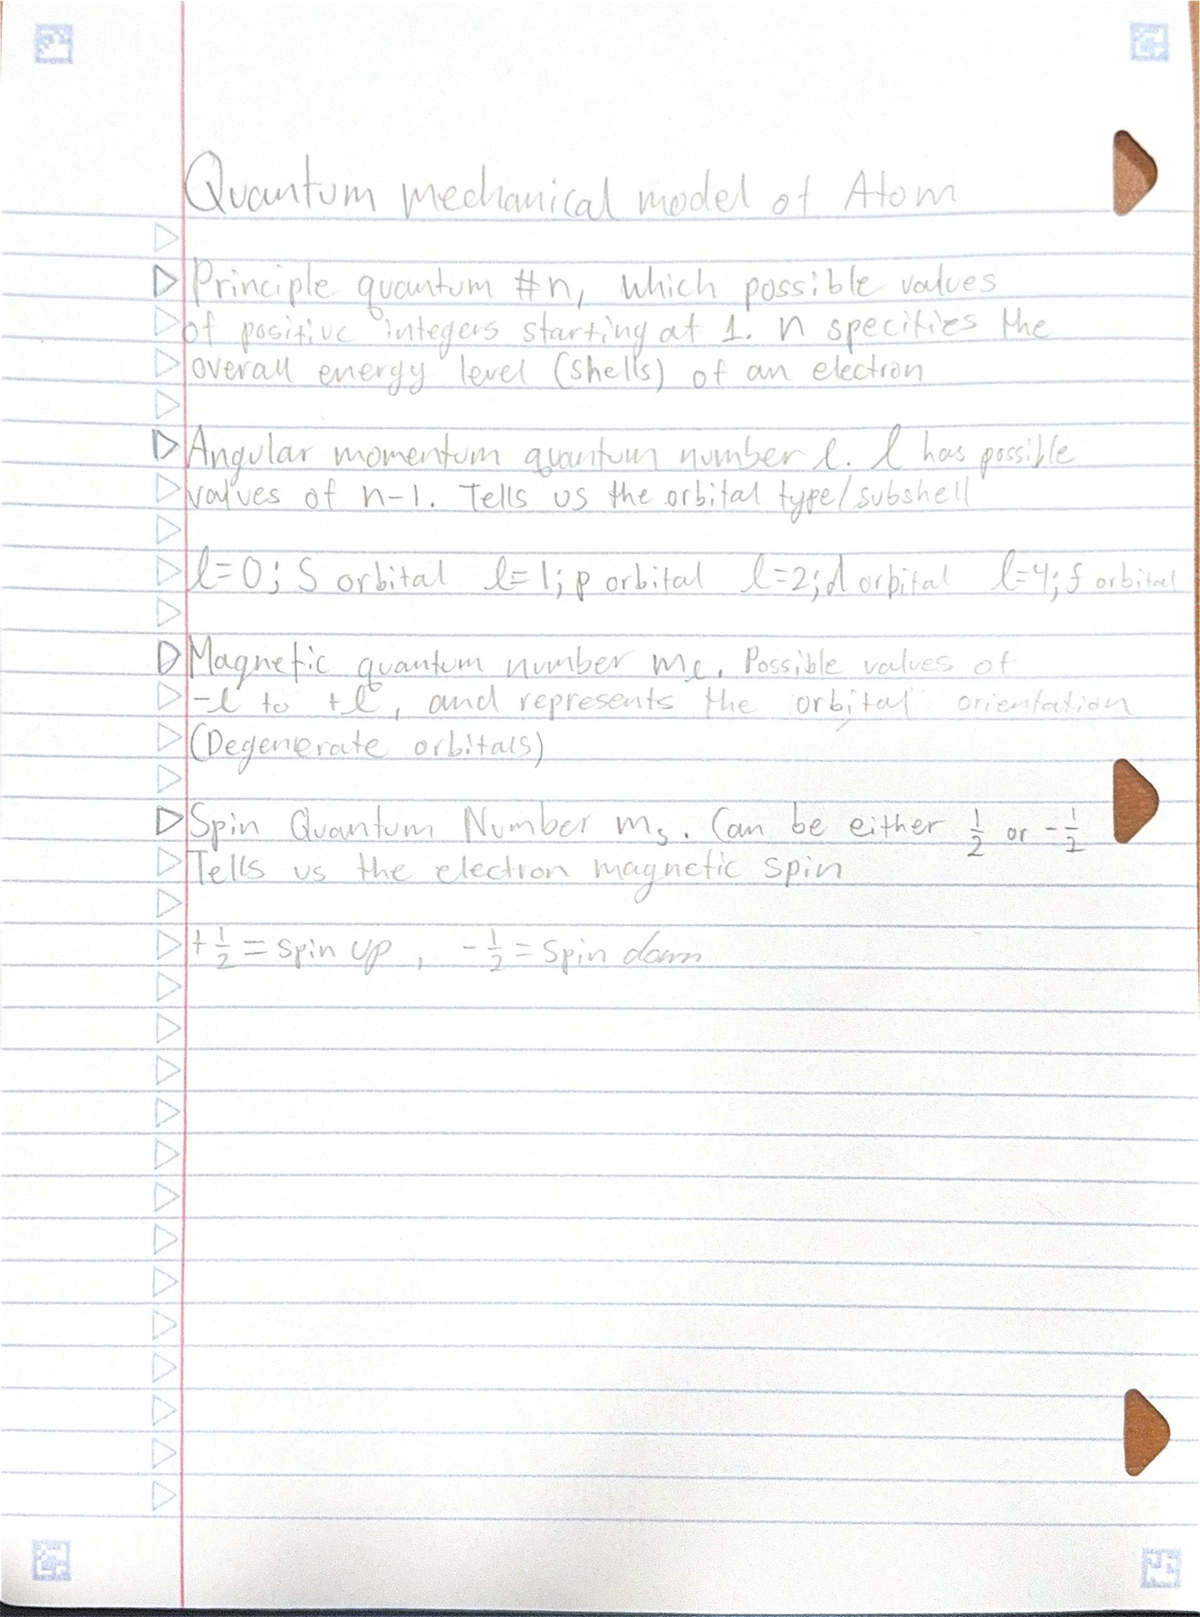 Quantum mechanical model of Atom
Principle quantum #n, which possible values
of positive integers starting at 1. n specifies the
overall energy level (shells) of an electron
Angular momentum quantum number l. l has possible
values of n-1. Tells us the orbital type/subshell
l=0; s orbital l=1; p orbital l=2; d orbital l=4; f orbital
Magnetic quantum number mₗ. Possible values of
-l to +l, and represents the orbital orientation
(Degenerate orbitals)
Spin Quantum Number mₛ. Can be either 1/2 or -1/2
Tells us the electron magnetic spin
+1/2 = spin up, -1/2 = spin down